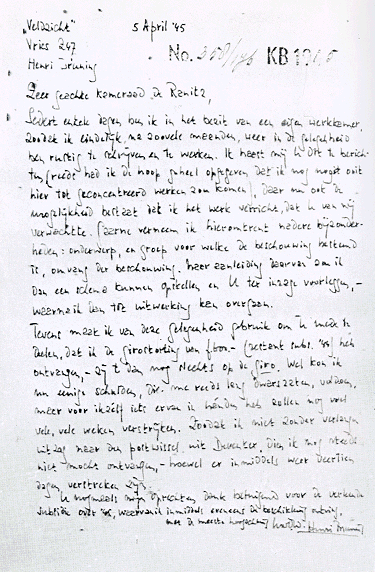 "Veldzicht"
Vries 247
Henri Bruning
5 April '45
No. 250/146 KB 1915
Zeer geachte kameraad De Ranitz,
Sedert enkele dagen ben ik in het bezit van een eigen werkkamer,
zoodat ik eindelijk, na zoovele maanden, weer in de gelegenheid
ben rustig te schrijven en te werken. Ik haast mij U dit te berich-
ten (reeds had ik de hoop geheel opgegeven dat ik nog nogit ooit
hier tot geconcentreerd werken zou komen), daar nu ook de
mogelijkheid bestaat dat ik het werk verricht, dat U van mij
verwachtte. Gaarne verneem ik hieromtrent nadere bijzonder-
heden: onderwerp, en groep voor welke de beschouwing bestemd
is, omvang der beschouwing. Naar aanleiding daarvan zou ik
dan een schema kunnen opstellen en U ter inzage voorleggen, -
waarna ik dan tot uitwerking kan overgaan.
Tevens maak ik van deze gelegenheid gebruik om U mede te
deelen, dat ik de girostorting van f. - (restant subs. '44) heb
ontvangen, - zij 't dan nog slechts op de giro. Wel kon ik
nu eenige schulden, die me reeds lang dwarszaten, voldoen,
maar voor ikzelf iets ervan in handen heb zullen nog vele
vele, vele weken verstrijken. Zoodat ik niet zonder verlangen
uitzag naar den postwissel uit Deventer, dien ik nog steeds
niet mocht ontvangen, - hoewel er inmiddels weer dertien
dagen verstreken zijn.
U nogmaals mijn oprechten dank betuigend voor de verleende
subsidie over '44, waarvan ik inmiddels eveneens de beschikking ontving,
met de meeste hoogachting Henri Bruning